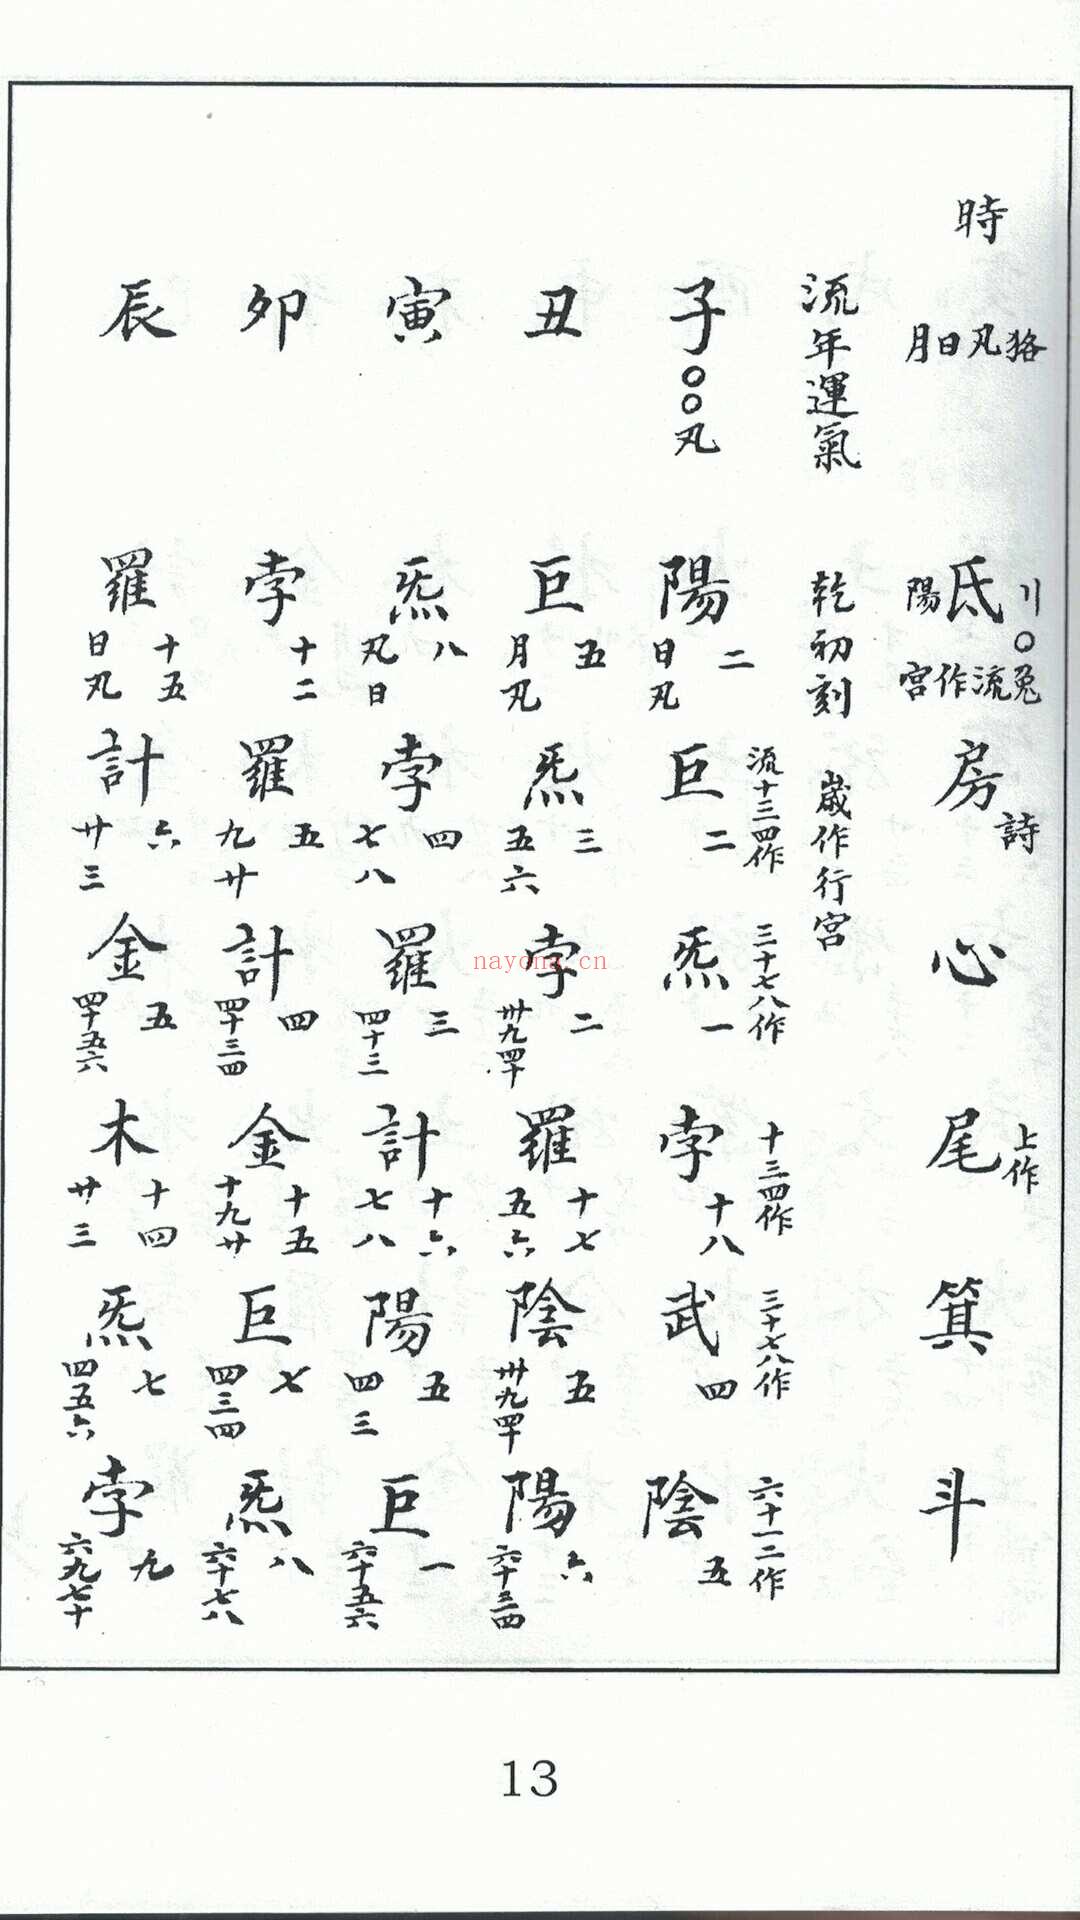 時
月日凡狢
氐
陽
川〇兔
宮作流
房
詩
心
尾
上作
箕
斗
流年運氣
乾初刻
歲作行宮
流十三四作
三十七八作
十三四作
三十七八作
六十一二作
子〇〇凡
陽
二
日凡
巨
二
炁
一
孛
十八
武
四
陰
五
丑
巨
五
月凡
炁
三
五六
孛
二
卅九四十
羅
十七
五六
陰
五
卅九四十
陽
六
六十三四
寅
炁
八
凡日
孛
四
七八
羅
三
四十三
計
十六
七八
陽
五
四三
巨
一
六十五六
卯
孛
十二
羅
五
九廿
計
四
四十三四
金
十五
十九廿
巨
七
四三四
炁
八
六十七八
辰
羅
十五
日凡
計
六
廿三
金
五
四十五六
木
十四
廿三
炁
七
四五六
孛
九
六九七十
nayona.cn
13